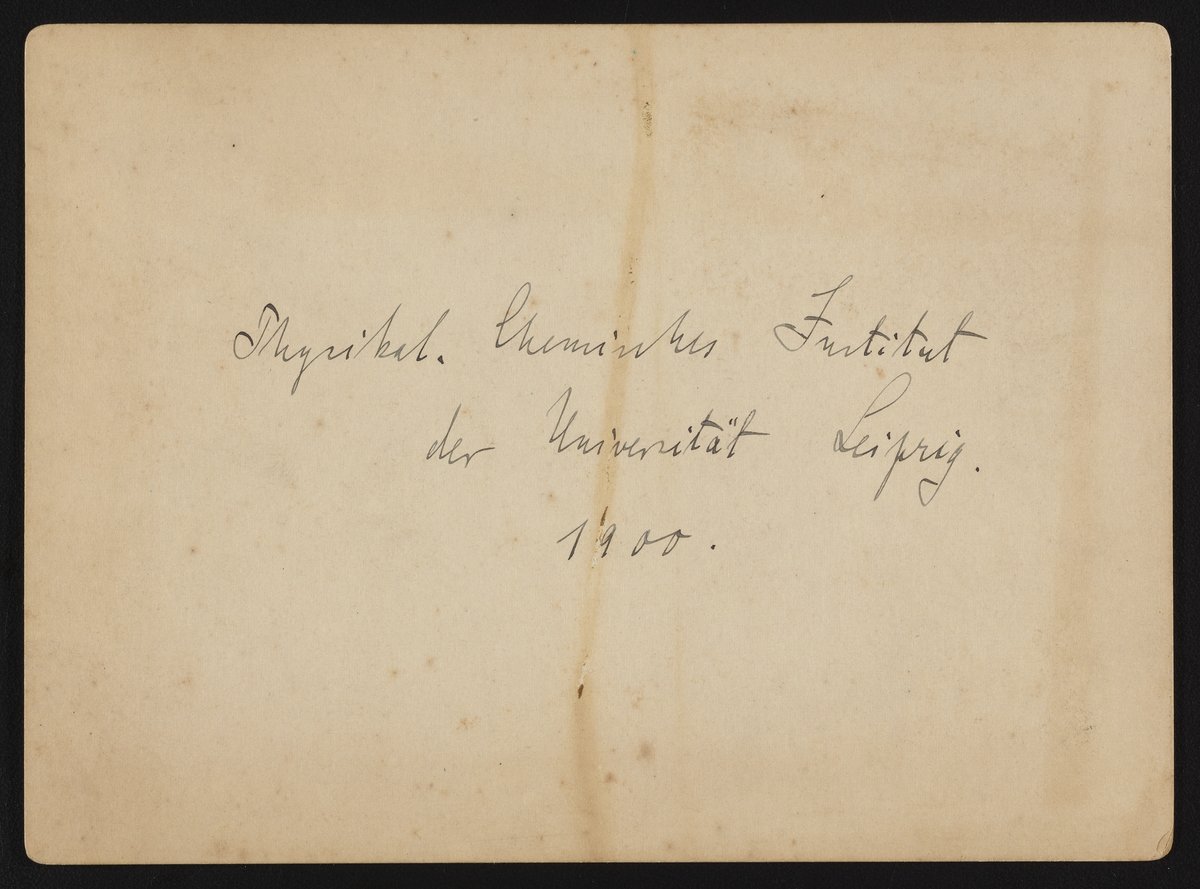 Physikal. Chemisches Institut
der Universität Leipzig.
1900.